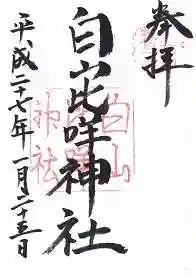 奉拝
白山比咩神社
白山
神社
平成二十七年一月二十五日